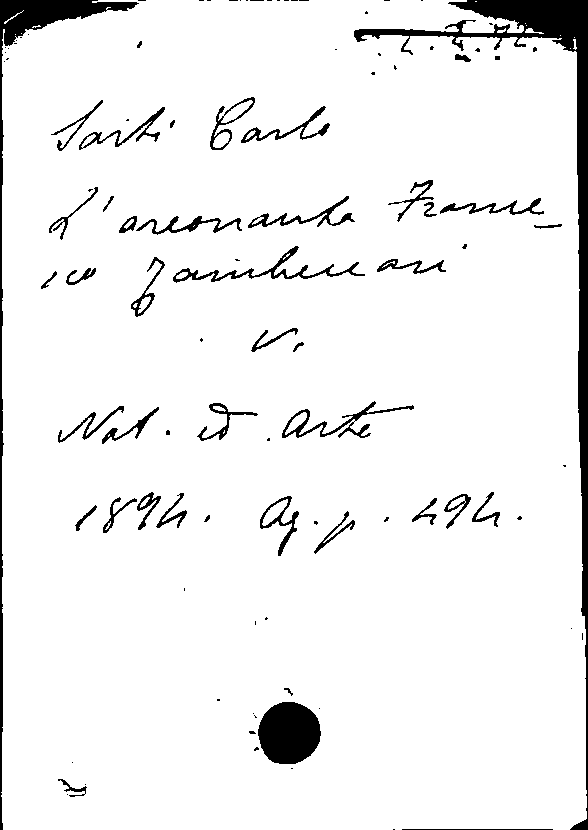 L. I. 72.
Sarti Carlo
L'areonauta France_
sco Zambeccari
V.
Nat. ed Arte
1894. Ag. p. 494.